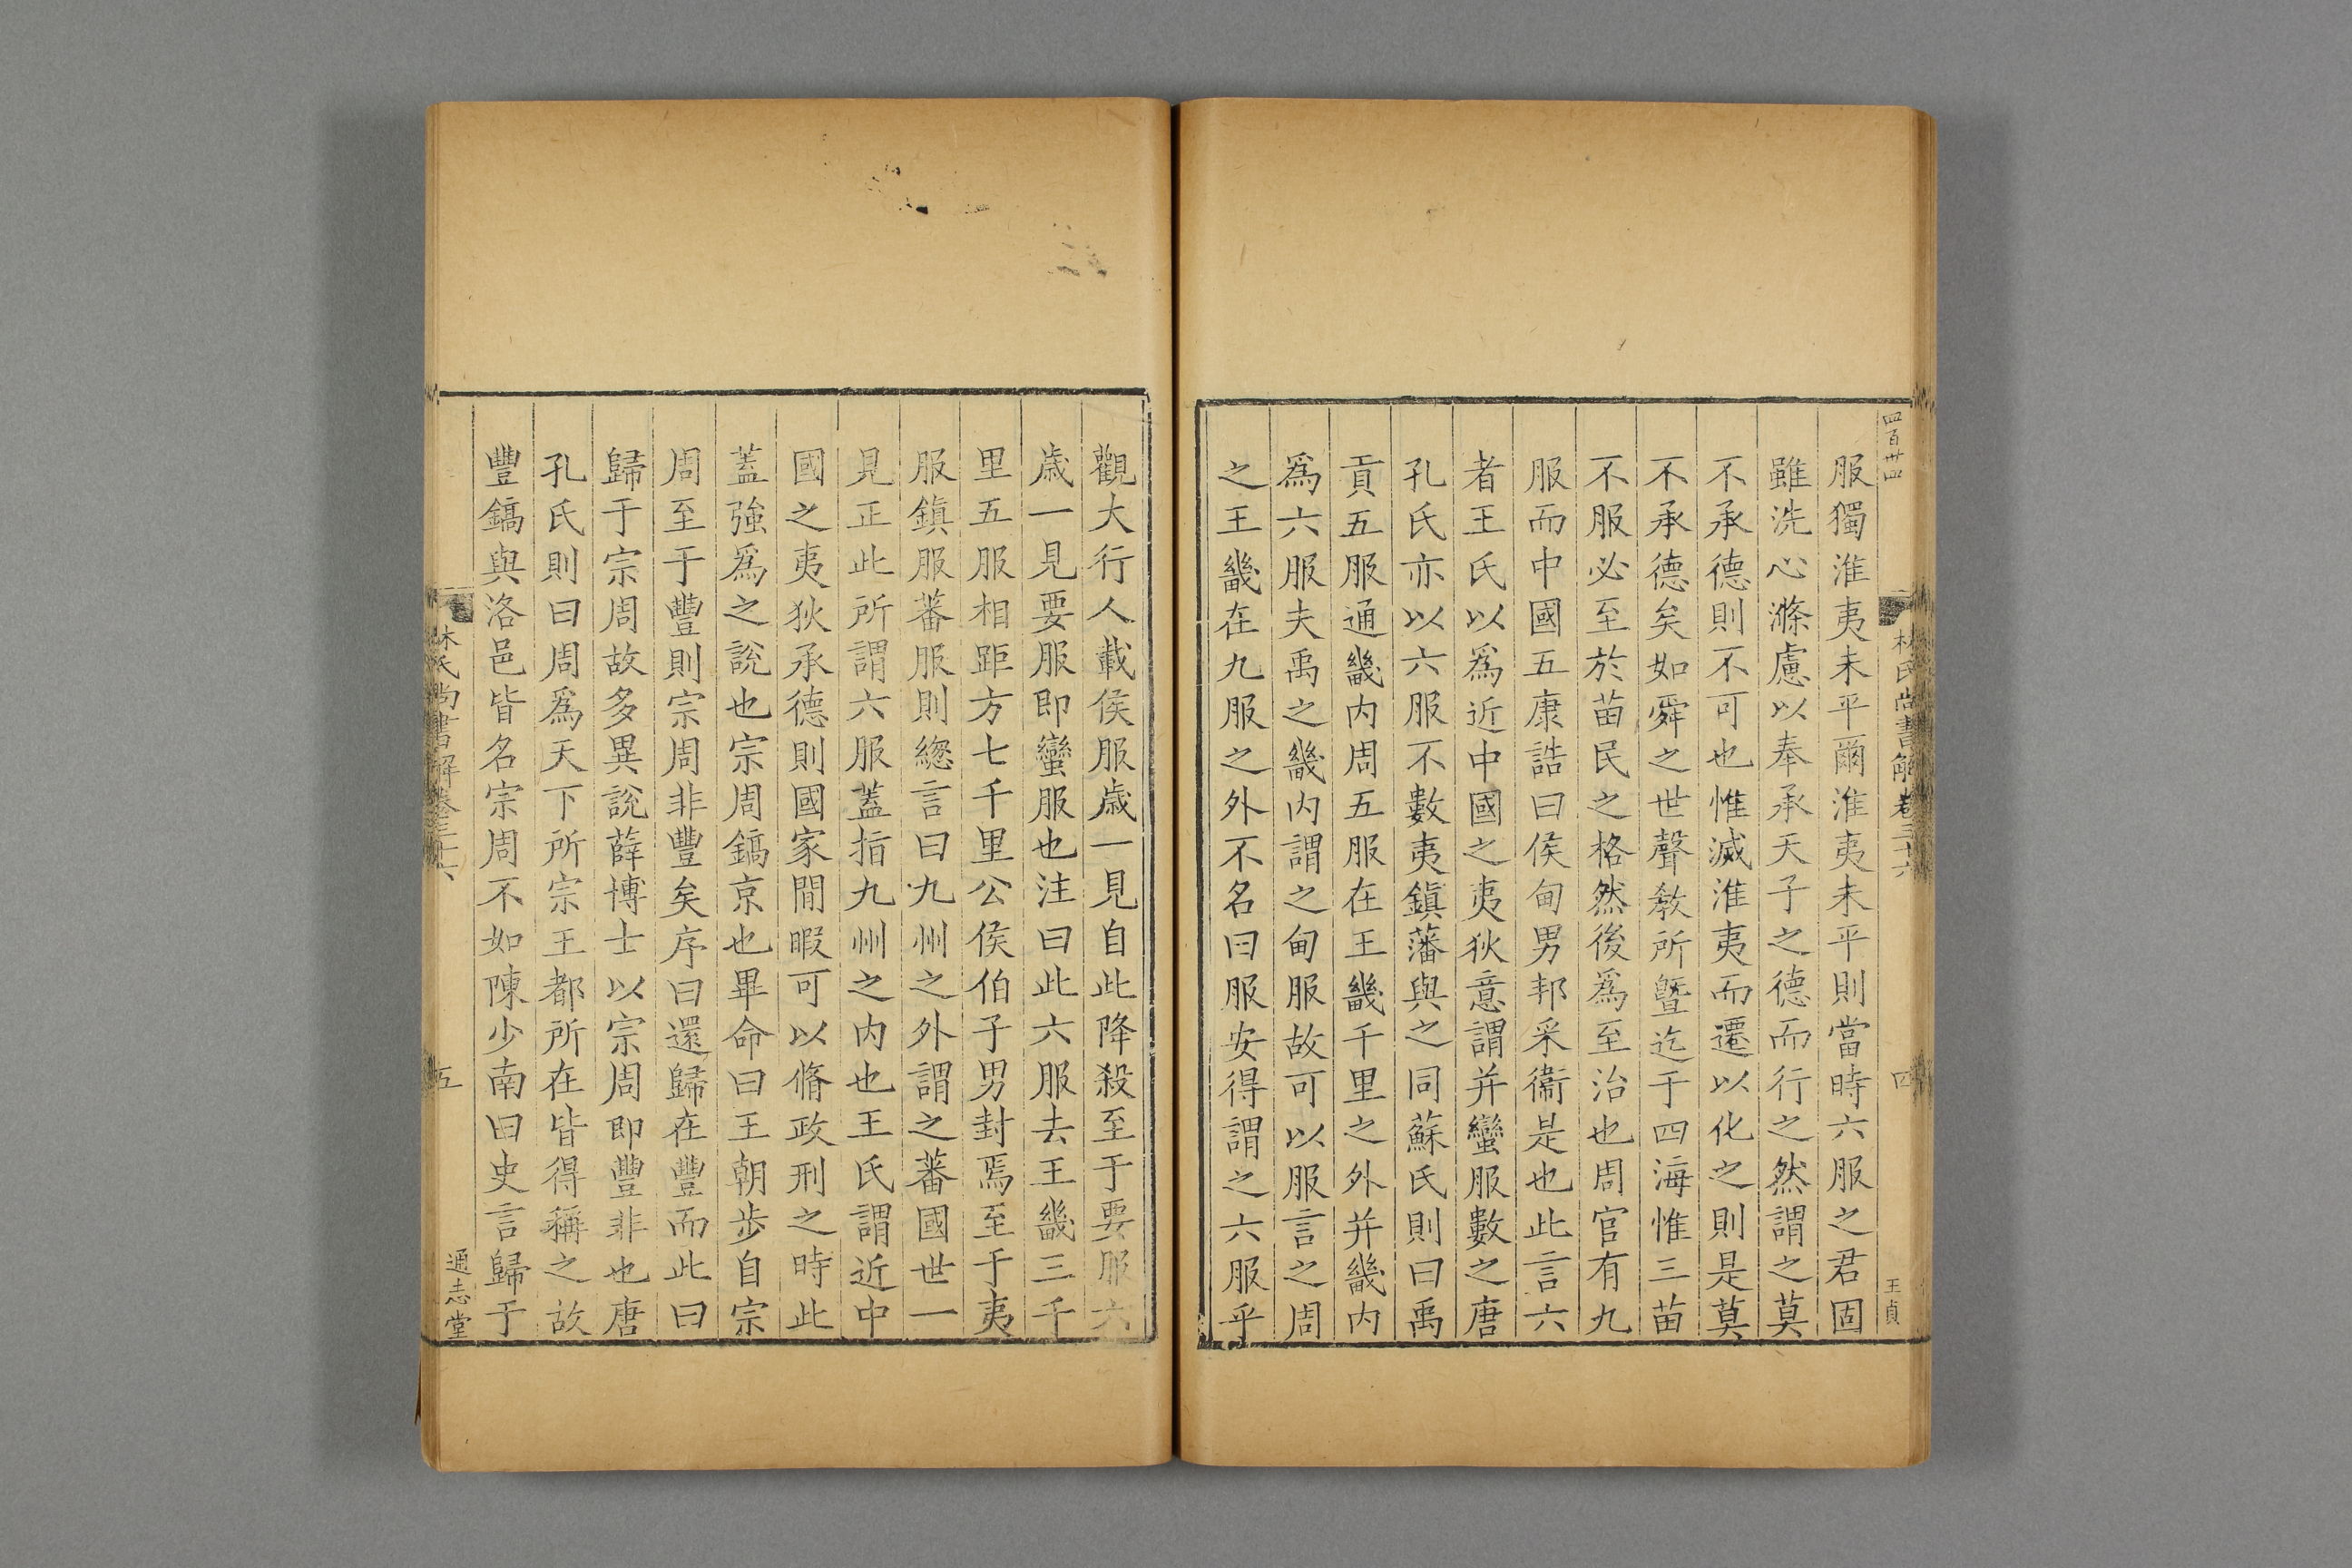 四百廿四
林氏尚書解卷三十六
四
王貞
服獨淮夷未平爾淮夷未平則當時六服之君固
雖洗心滌慮以奉承天子之德而行之然謂之莫
不承德則不可也惟滅淮夷而遷以化之則是莫
不承德矣如舜之世聲教所曁迄于四海惟三苗
不服必至於苗民之格然後爲至治也周官有九
服而中國五康誥曰侯甸男邦采衞是也此言六
者王氏以爲近中國之夷狄意謂并蠻服數之唐
孔氏亦以六服不數夷鎭藩與之同蘇氏則曰禹
貢五服通畿内周五服在王畿千里之外并畿内
爲六服夫禹之畿内謂之甸服故可以服言之周
之王畿在九服之外不名曰服安得謂之六服乎
觀大行人載侯服歲一見自此降殺至于要服六
歲一見要服即蠻服也注曰此六服去王畿三千
里五服相距方七千里公侯伯子男封焉至于夷
服鎭服蕃服則總言曰九州之外謂之蕃國世一
見正此所謂六服蓋指九州之内也王氏謂近中
國之夷狄承德則國家閒暇可以脩政刑之時此
蓋強爲之說也宗周鎬京也畢命曰王朝步自宗
周至于豐則宗周非豐矣序曰還歸在豐而此曰
歸于宗周故多異說薛博士以宗周即豐非也唐
孔氏則曰周爲天下所宗王都所在皆得稱之故
豐鎬與洛邑皆名宗周不如陳少南曰史言歸于
林氏尚書解卷三十六
五
通志堂